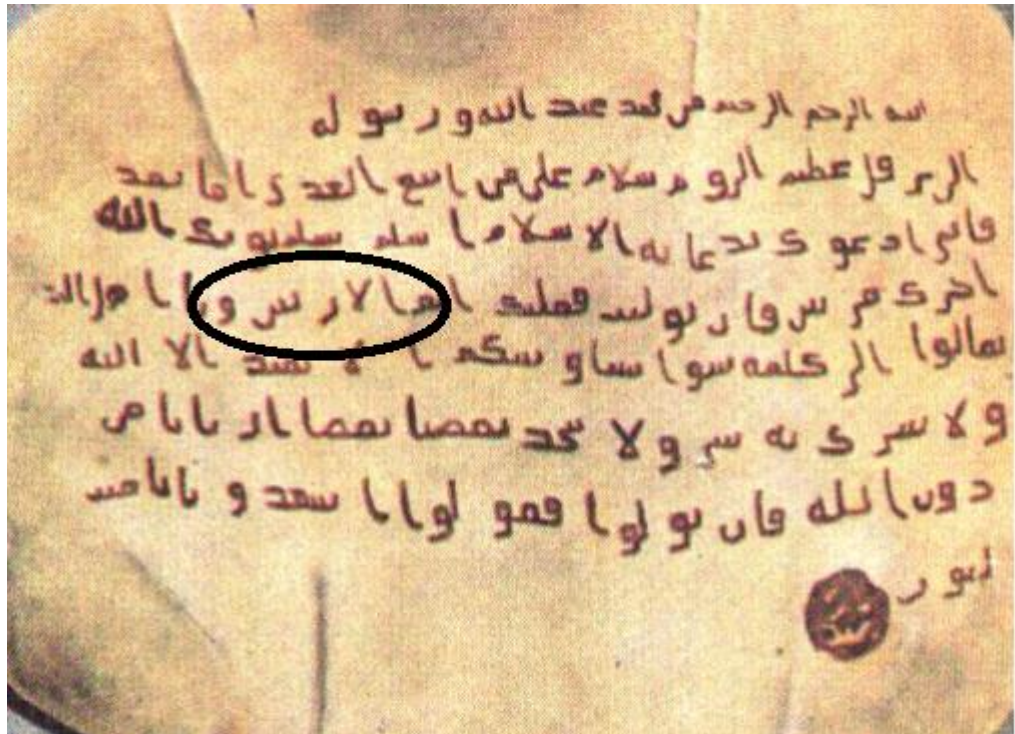 الله الرحمن الرحيم من محمد عبد الله ورسوله
الى هرقل عظيم الروم سلام على من اتبع الهدى اما بعد
فاني ادعوك بدعاية الاسلام اسلم تسلم يوتك الله
اجرك مرتين فان توليت فعليك اثم الاريسين ويا اهل
تعالوا الى كلمة سوا بيننا وبينكم الا نعبد الا الله
ولا نشرك به شيا ولا يتخذ بعضنا بعضا اربابا من
دون الله فان تولوا فقولوا اشهدوا بانا